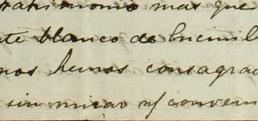 matrimonio mas que
te blanco de
nos hemos consagrad
sin mirar n/ conven